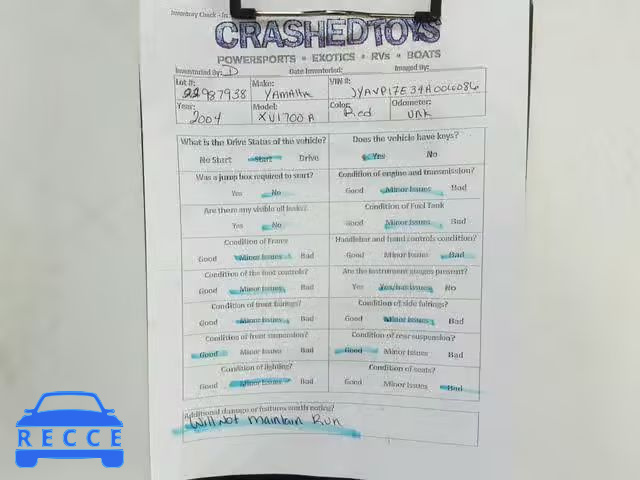 Inventory Check - In
CRASHEDTOYS
POWERSPORTS • EXOTICS • RVs • BOATS
Inventoried By: D Date Inventoried: Imaged By:
Lot #: 22987938 Make: YAMAHA VIN #: JYAVP17E34A006086
Year: 2004 Model: XV1700A Color: Red Odometer: UNK
What is the Drive Status of the vehicle? Does the vehicle have keys?
No Start Start Drive Yes No
Was a jump box required to start? Condition of engine and transmission?
Yes No Good Minor Issues Bad
Are there any visible oil leaks? Condition of Fuel Tank
Yes No Good Minor Issues Bad
Condition of Frame Handlebar and hand controls condition?
Good Minor Issues Bad Good Minor Issues Bad
Condition of the foot controls? Are the instrument gauges present?
Good Minor Issues Bad Yes Yes/has issues No
Condition of front fairings? Condition of side fairings?
Good Minor Issues Bad Good Minor Issues Bad
Condition of front suspension? Condition of rear suspension?
Good Minor Issues Bad Good Minor Issues Bad
Condition of lighting? Condition of seats?
Good Minor Issues Bad Good Minor Issues Bad
Additional damage or features worth noting?
Will Not maintain Run
RECCE